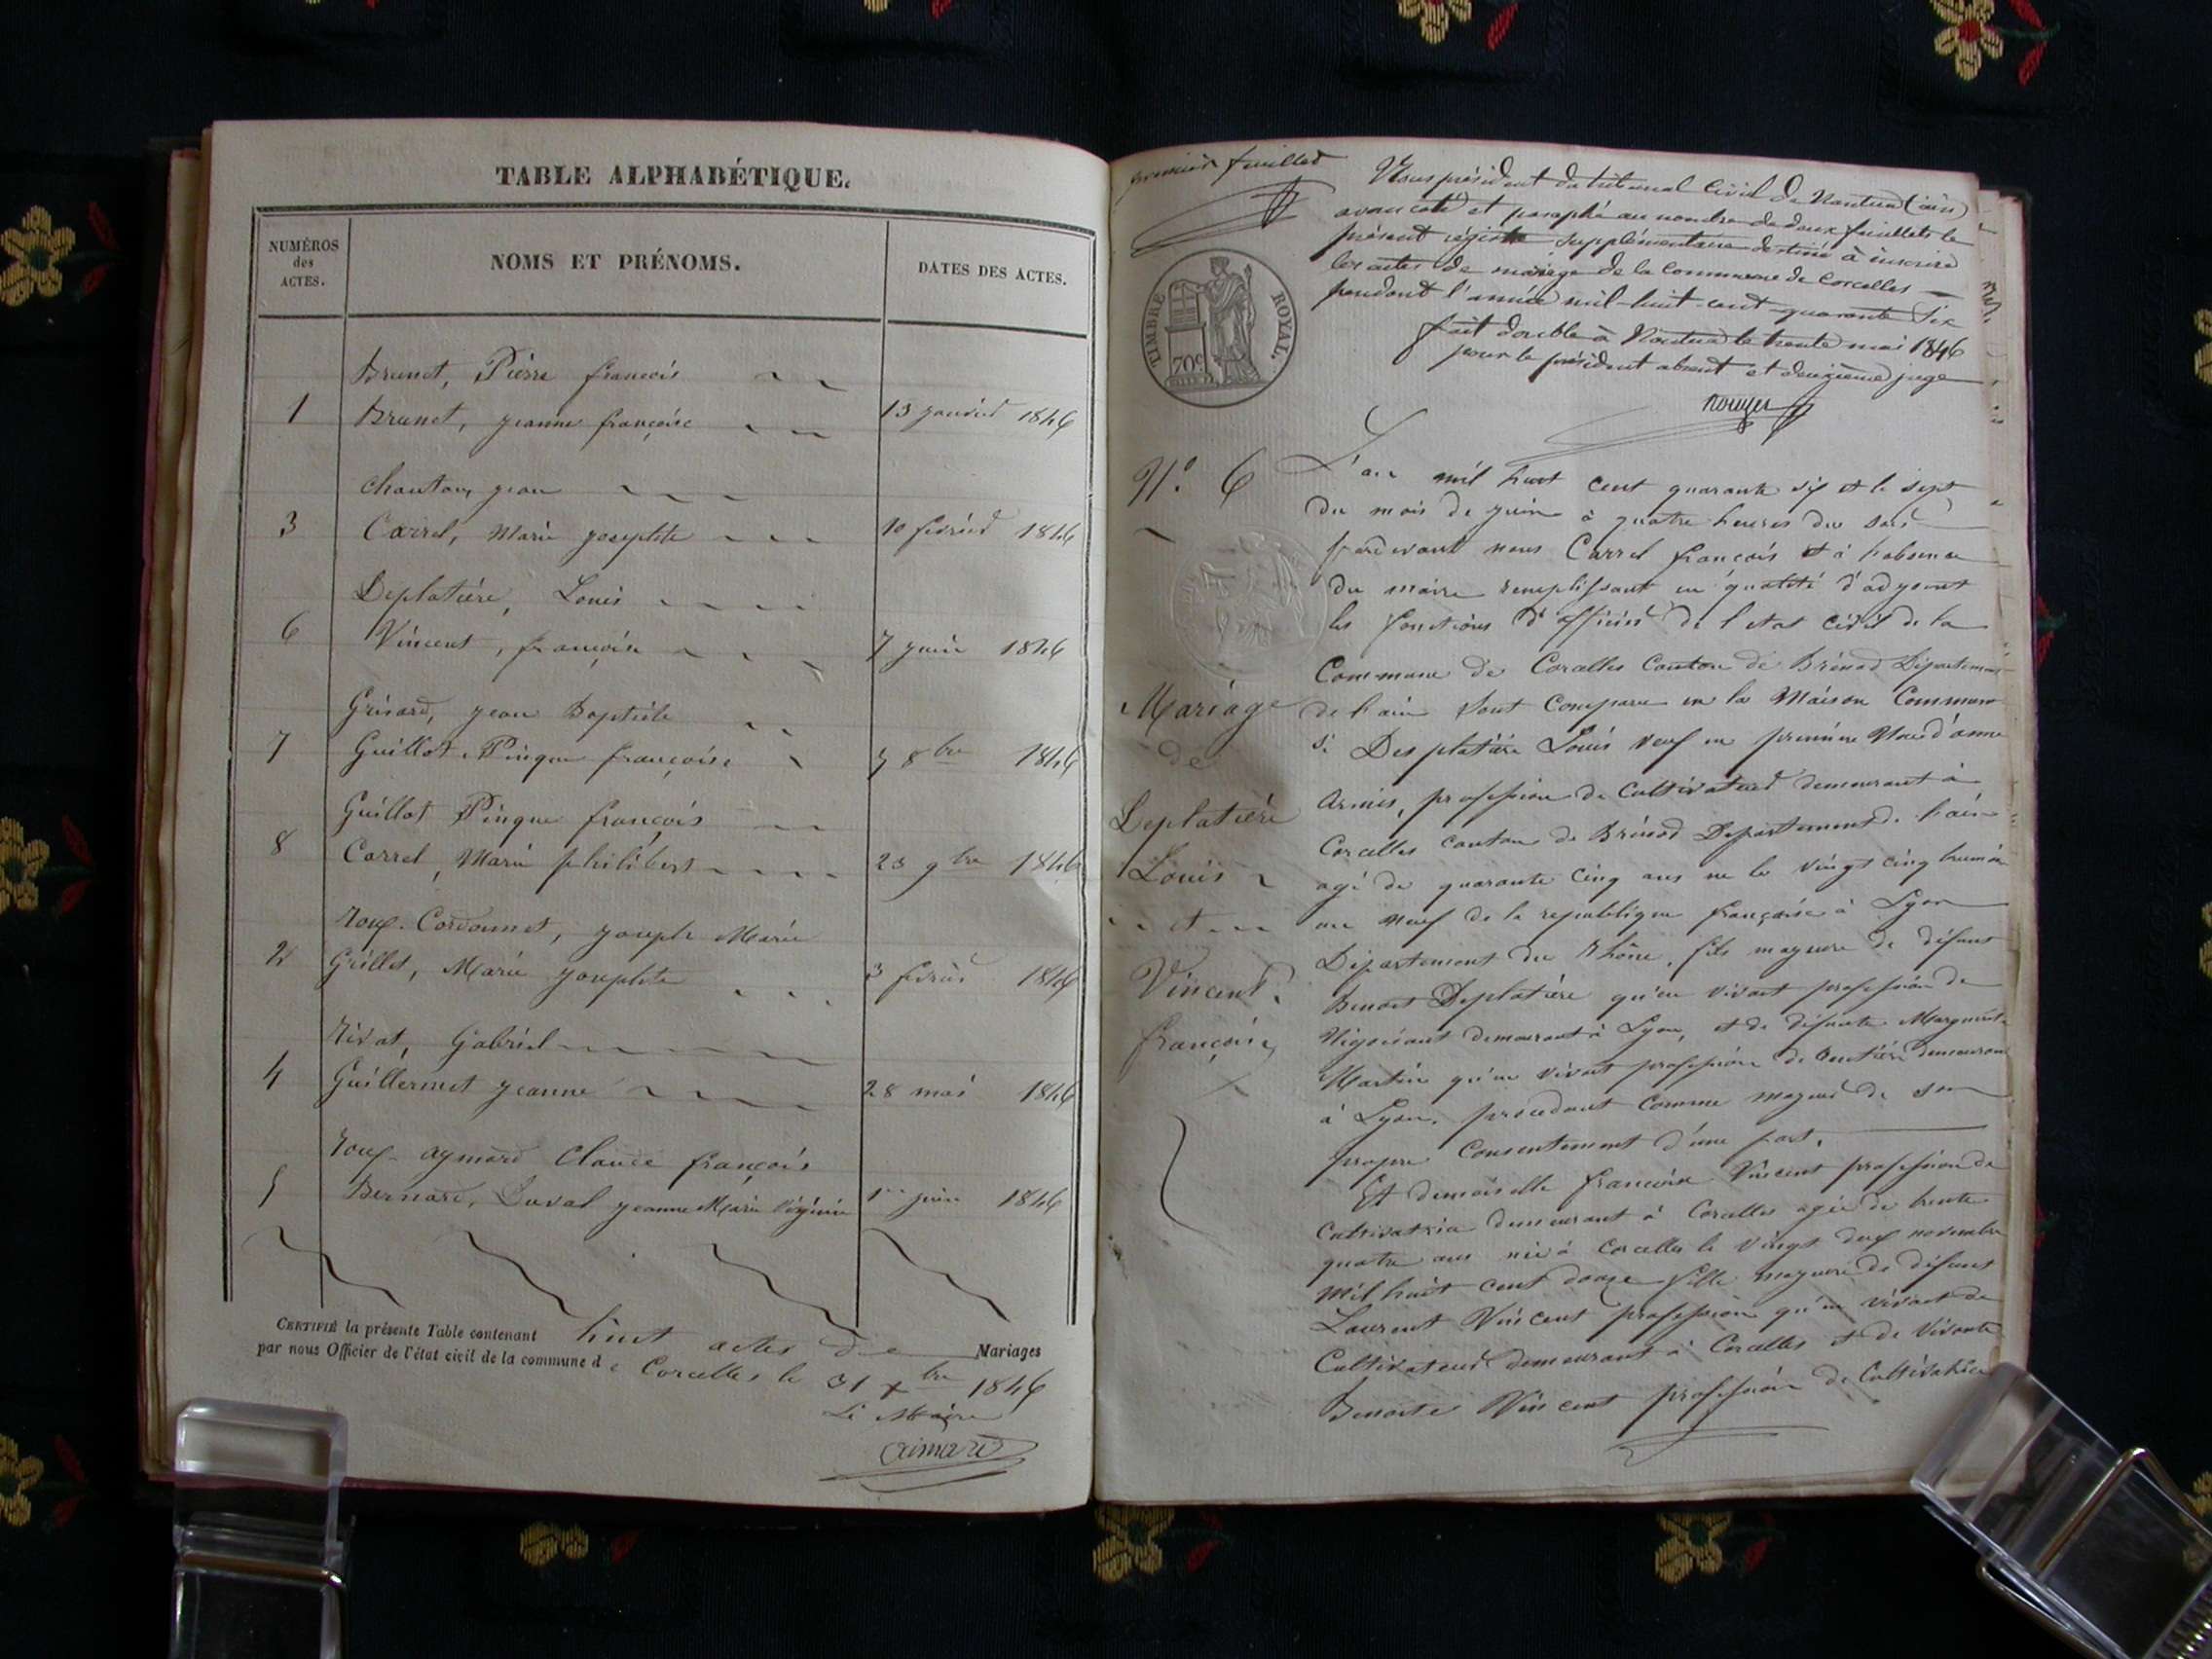 TABLE ALPHABÉTIQUE.
NUMÉROS
des
ACTES.
NOMS ET PRÉNOMS.
DATES DES ACTES.
Brunet, Pierre françois
1 Brunet, jeanne françoise 13 janvier 1846
Chanton, jean
3 Carrel, Marie josephte 10 février 1846
Deplatière, Louis
6 Vincent, françoise 7 juin 1846
Grisard, jean Baptiste
7 Guillot Pingue françoise 5 8bre 1846
Guillot Pingue françois
8 Carrel, Marie philibert 23 9bre 1846
Roux-Cordonnet, joseph Marie
2 Grillet, Marie josephte 3 févrie 1846
Rivat, Gabriel
4 Guillermet jeanne 28 mai 1846
Roux-aymard Claude françois
5 Bernard, Duval jeanne Marie Virginie 1er juin 1846
CERTIFIÉ la présente Table contenant huit actes de Mariages
par nous Officier de l'état civil de la commune de Corcelles le 31 xbre 1846
Le Maire
aimard
premier feuillet
Nous président du tribunal Civil de Nantua (ain)
avons coté et paraphé au nombre de deux feuillets le
présent régistre supplémentaire destiné à inscrire
les actes de mariage de la Commune de Corcelles
pendant l'année mil-huit-cent-quarante Six
fait double à Nantua le trente mai 1846
pour le président absent et deuxième juge
TIMBRE ROYAL.
70c
N.º 6
L'an mil huit cent quarante six et le sept
du mois de juin à quatre heures du soir
pardevant nous Carrel françois et à l'absence
du maire remplissant en qualité d'adjoint
les fonctions d'officier de l'etat civil de la
Commune de Corcelles Canton de Brénod Département
de l'ain sont Comparu en la Maison Commune
Mariage
de
Deplatière
Louis
et
Vincent
françoise
Si Desplatière Louis veuf en première Noce d'anne
armés, profession de Cultivateur demeurant à
Corcelles canton de Brénod Département de l'ain
agé de quarante cinq ans né le vingt cinq brumaire
an neuf de la republique française à Lyon
Département du Rhône, fils majeure de défunt
Benoit Deplatière qu'en vivant profession de
Négociant demeurant à Lyon, et de défunte Marguerite
Martin qu'en vivant profession de Rentière demeurant
à Lyon, procédant comme majeur de son
propre Consentement d'une part,
Et demoiselle françoise Vincent profession de
Cultivatrice demeurant à Corcelles agée de trente
quatre ans née à Corcelles le vingt deux novembre
mil huit cent douze fille majeure de défunt
Laurent Vincent profession qu'en vivant de
Cultivateur demeurant à Corcelles et de vivante
Benoite Vincent profession de Cultivatrice